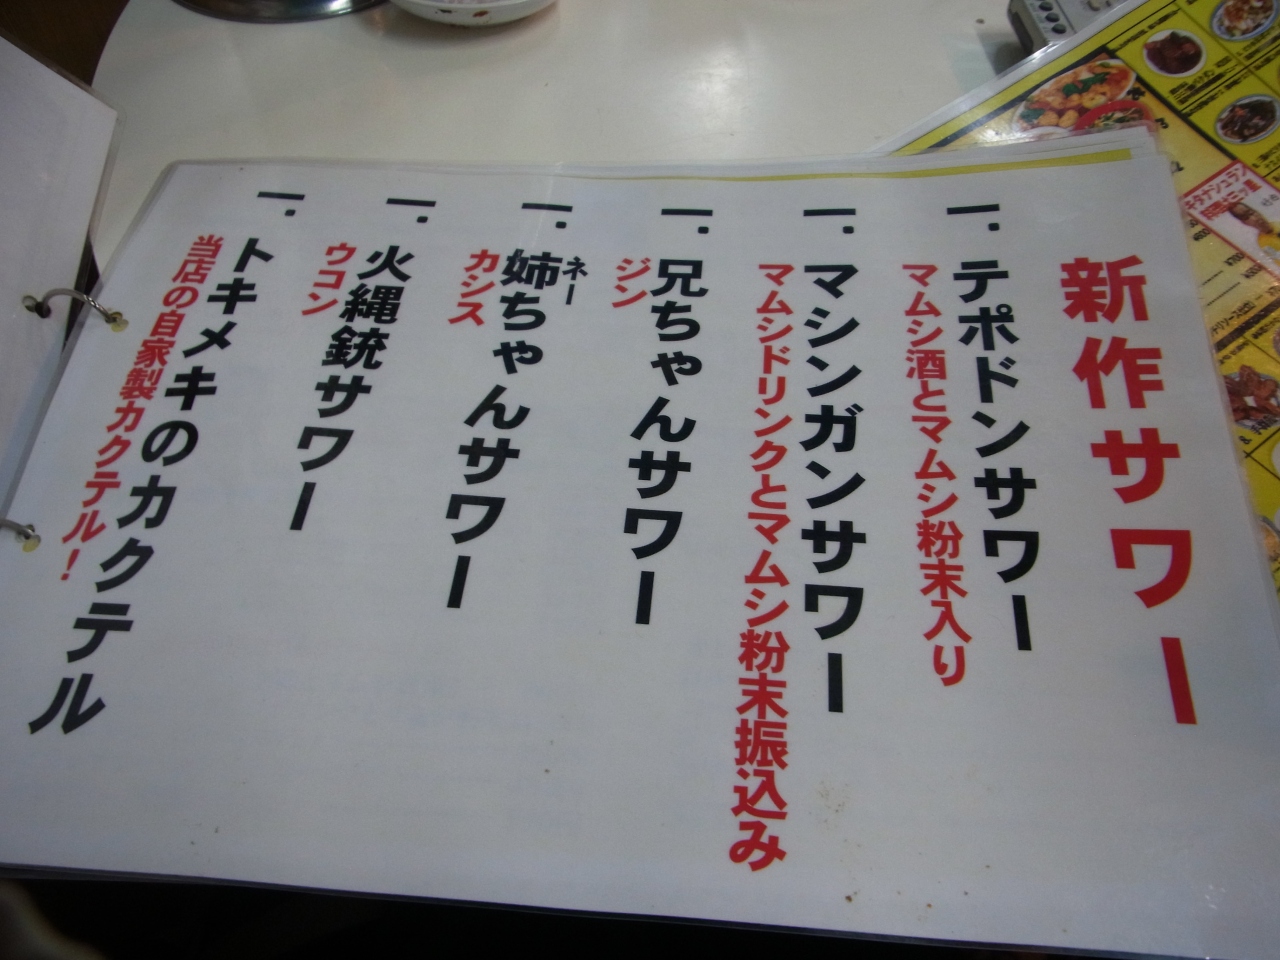 新作サワー
一．テポドンサワー
マムシ酒とマムシ粉末入り
一．マシンガンサワー
マムシドリンクとマムシ粉末振込み
一．兄ちゃんサワー
ジン
ネー
一．姉ちゃんサワー
カシス
一．火縄銃サワー
ウコン
一．トキメキのカクテル
当店の自家製カクテル！